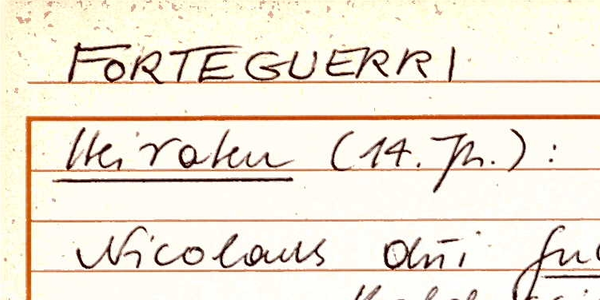 FORTEGUERRI
Heiraten (14. Jh.):
Nicolaus dñi